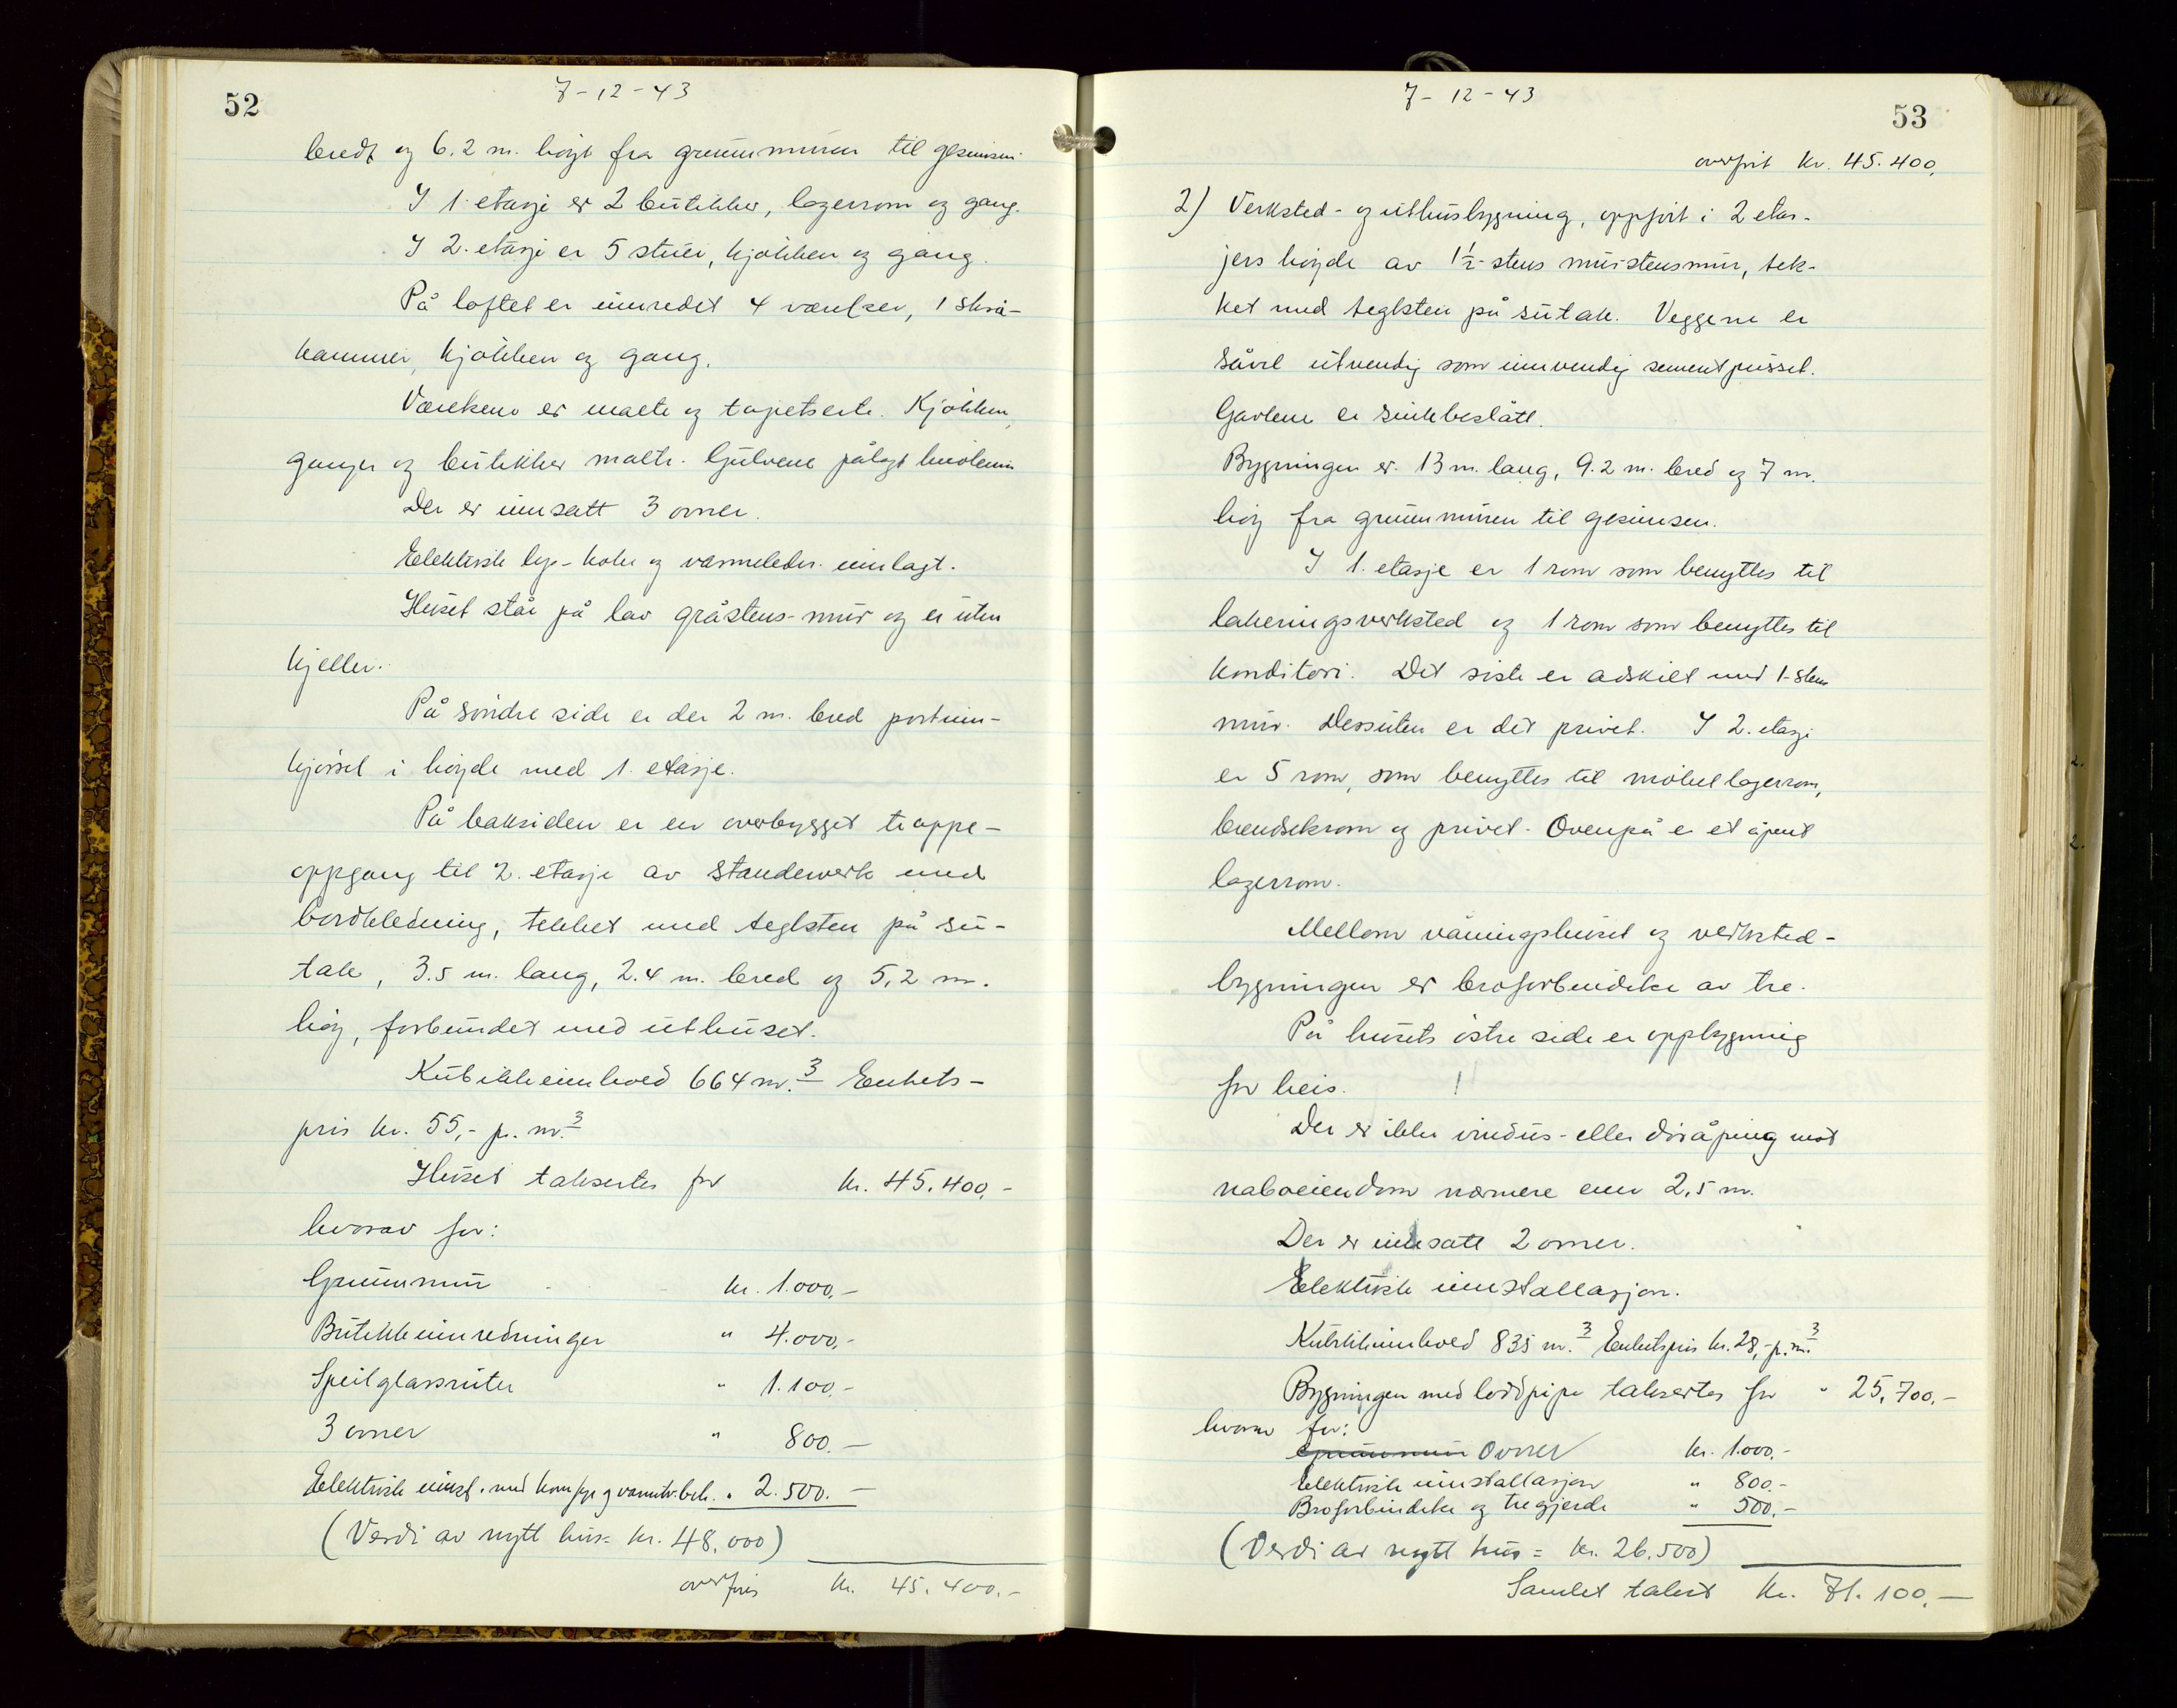 52
7-12-43
bredt og 6.2 m. høgt fra grunnmuren til gesimsen.
I 1. etasje er 2 butikker, lagerrom og gang.
I 2. etasje er 5 stuer, kjøkken og gang.
På loftet er innredet 4 værelser, 1 skrå-
kammer, kjøkken og gang.
Værelsene er malte og tapetserte. Kjøkken,
ganger og butikker malte. Gulvene pålagt linoleum
Der er innsatt 3 ovner.
Elektrisk lys- koke og varmeledn. innlagt.
Huset står på lav gråstens-mur og er uten
kjeller.
På søndre side er der 2 m. bred portinn-
kjørsel i høyde med 1. etasje.
På baksiden er en overbygget trappe-
oppgang til 2. etasje av standerverk med
bordkledning, tekket med teglsten på su-
tak, 3.5 m. lang, 2.4 m. bred og 5,2 m.
høg, forbundet med uthuset.
Kubikkinnhold 664 m.3 Enhets-
pris kr. 55,- p. m.3
Huset takseres for kr. 45.400,-
hvorav for:
Grunnmur kr. 1.000,-
Butikkinnredninger " 4.000,-
Speilglassruter " 1.100,-
3 ovner " 800.-
Elektrisk innst. med komfyr og varmtv.beh. " 2.500.-
(Verdi av nytt hus = kr. 48.000)
overføres kr. 45.400.-
7-12-43
53
overført kr. 45.400,
2) Verksted- og uthusbygning, oppført i 2 etas-
jers høyde av 1½-stens murstensmur, tek-
ket med teglsten på sutak. Veggene er
såvel utvendig som innvendig sementpusset.
Gavlene er sinkbeslått.
Bygningen er 13 m. lang, 9.2 m. bred og 7 m.
høg fra grunnmuren til gesimsen.
I 1. etasje er 1 rom som benyttes til
lakeringsverksted og 1 rom som benyttes til
konditori. Det siste er adskilt med 1-stens
mur. Dessuten er det privet. I 2. etasje
er 5 rom, som benyttes til møbellagerrom,
brendselsrom og privet. Ovenpå er et åpent
lagerrom.
Mellom våningshuset og verksted-
bygningen er broforbindelse av tre.
På husets østre side er oppbygning
for heis.
Der er ikke vindus- eller døråpning mot
naboeiendom nærmere enn 2,5 m.
Der er innsatt 2 ovner.
Elektrisk innstallasjon.
Kubikkinnhold 835 m.3 Enhetspris kr. 28,- p. m.3
Bygningen med loddpipe takseres for " 25,700.-
hvorav for:
Grunnmur Ovner kr. 1.000.-
Elektrisk innstallasjon " 800.-
Broforbindelse og tregjerde " 500.-
(Verdi av nytt hus = kr. 26.500)
Samlet takst kr. 71.100,-